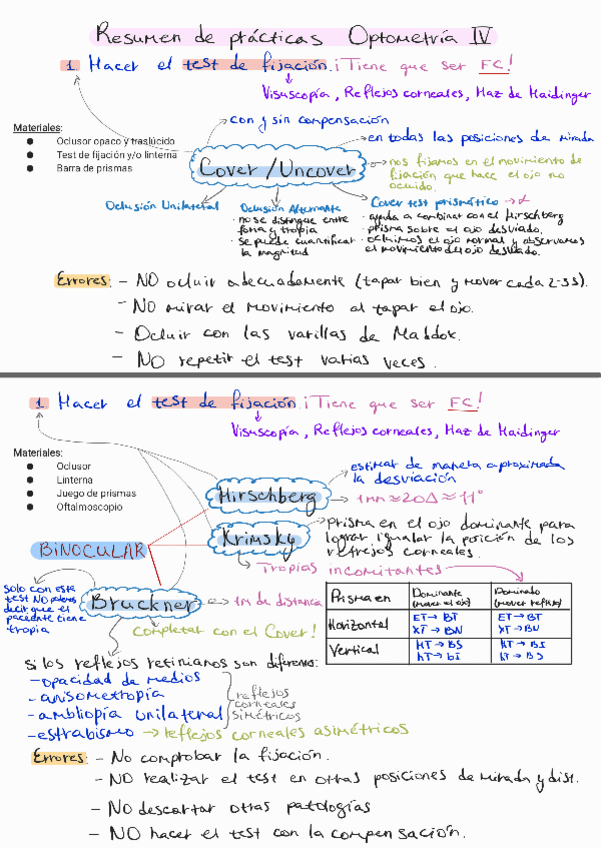 Resumen de prácticas Optometría IV
1. Hacer el test de fijación. ¡Tiene que ser FC!
Visuscopía, Reflejos corneales, Haz de Haidinger
Materiales:
● Oclusor opaco y traslúcido
● Test de fijación y/o linterna
● Barra de prismas
con y sin compensación
Cover/Uncover
en todas las posiciones de mirada
nos fijamos en el movimiento de
fijación que hace el ojo no
ocluido.
Oclusión Unilateral
Oclusión Alternante
· no se distingue entre
foria y tropia
· se puede cuantificar
la magnitud
Cover test prismático
· ayuda a combinar con el Hirschberg
· prisma sobre el ojo desviado.
· ocluimos el ojo normal y observamos
el movimiento del ojo desviado.
Errores: - NO ocluir adecuadamente (tapar bien y mover cada 2-3s).
- NO mirar el movimiento al tapar el ojo.
- Ocluir con las varillas de Maddox.
- NO repetir el test varias veces.
1 Hacer el test de fijación ¡Tiene que ser FC!
Visuscopía, Reflejos corneales, Haz de Haidinger
Materiales:
● Oclusor
● Linterna
● Juego de prismas
● Oftalmoscopio
Hirschberg
estimar de manera aproximada
la desviación
1mm ≈ 20Δ ≈ 11°
Krimsky
prisma en el ojo dominante para
lograr igualar la posición de los
reflejos corneales.
Tropias incomitantes
BINOCULAR
Solo con este
test NO podemos
decir que el
paciente tiene
tropia
Bruckner
1m de distancia
completar con el Cover!
Prisma en
Dominante
(mover el ojo)
Dominado
(mover reflejo)
Horizontal
ET → BT
XT → BN
ET → BT
XT → BN
Vertical
HT → BS
hT → bI
HT → BI
hT → BS
si los reflejos retinianos son diferentes:
- opacidad de medios
- anisometropía
- ambliopía unilateral
reflejos
corneales
simétricos
- estrabismo → reflejos corneales asimétricos
Errores: - No comprobar la fijación.
- NO realizar el test en otras posiciones de mirada y dist.
- NO descartar otras patologías
- NO hacer el test con la compensación.